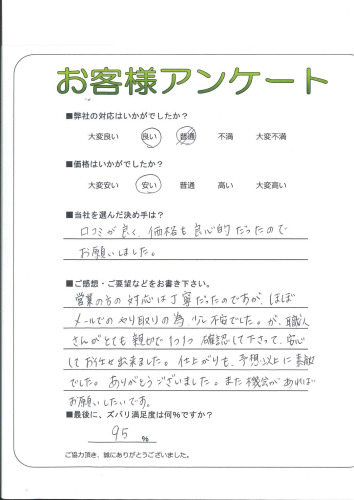 お客様アンケート
■弊社の対応はいかがでしたか?
大変良い 良い 普通 不満 大変不満
■価格はいかがでしたか?
大変安い 安い 普通 高い 大変高い
■当社を選んだ決め手は?
口コミが良く、価格も良心的だったので
お願いしました。
■ご感想・ご要望などをお書き下さい。
営業の方の対応は丁寧だったのですが、ほぼ
メールでのやり取りの為、少し不安でした。が、職人
さんがとても親切で1つ1つ確認して下さって、安心
してお任せ出来ました。仕上がりも、予想以上に素敵
でした。ありがとうございました。また機会があれば
お願いしたいです。
■最後に、ズバリ満足度は何%ですか?
95 %
ご協力頂き、誠にありがとうございました。